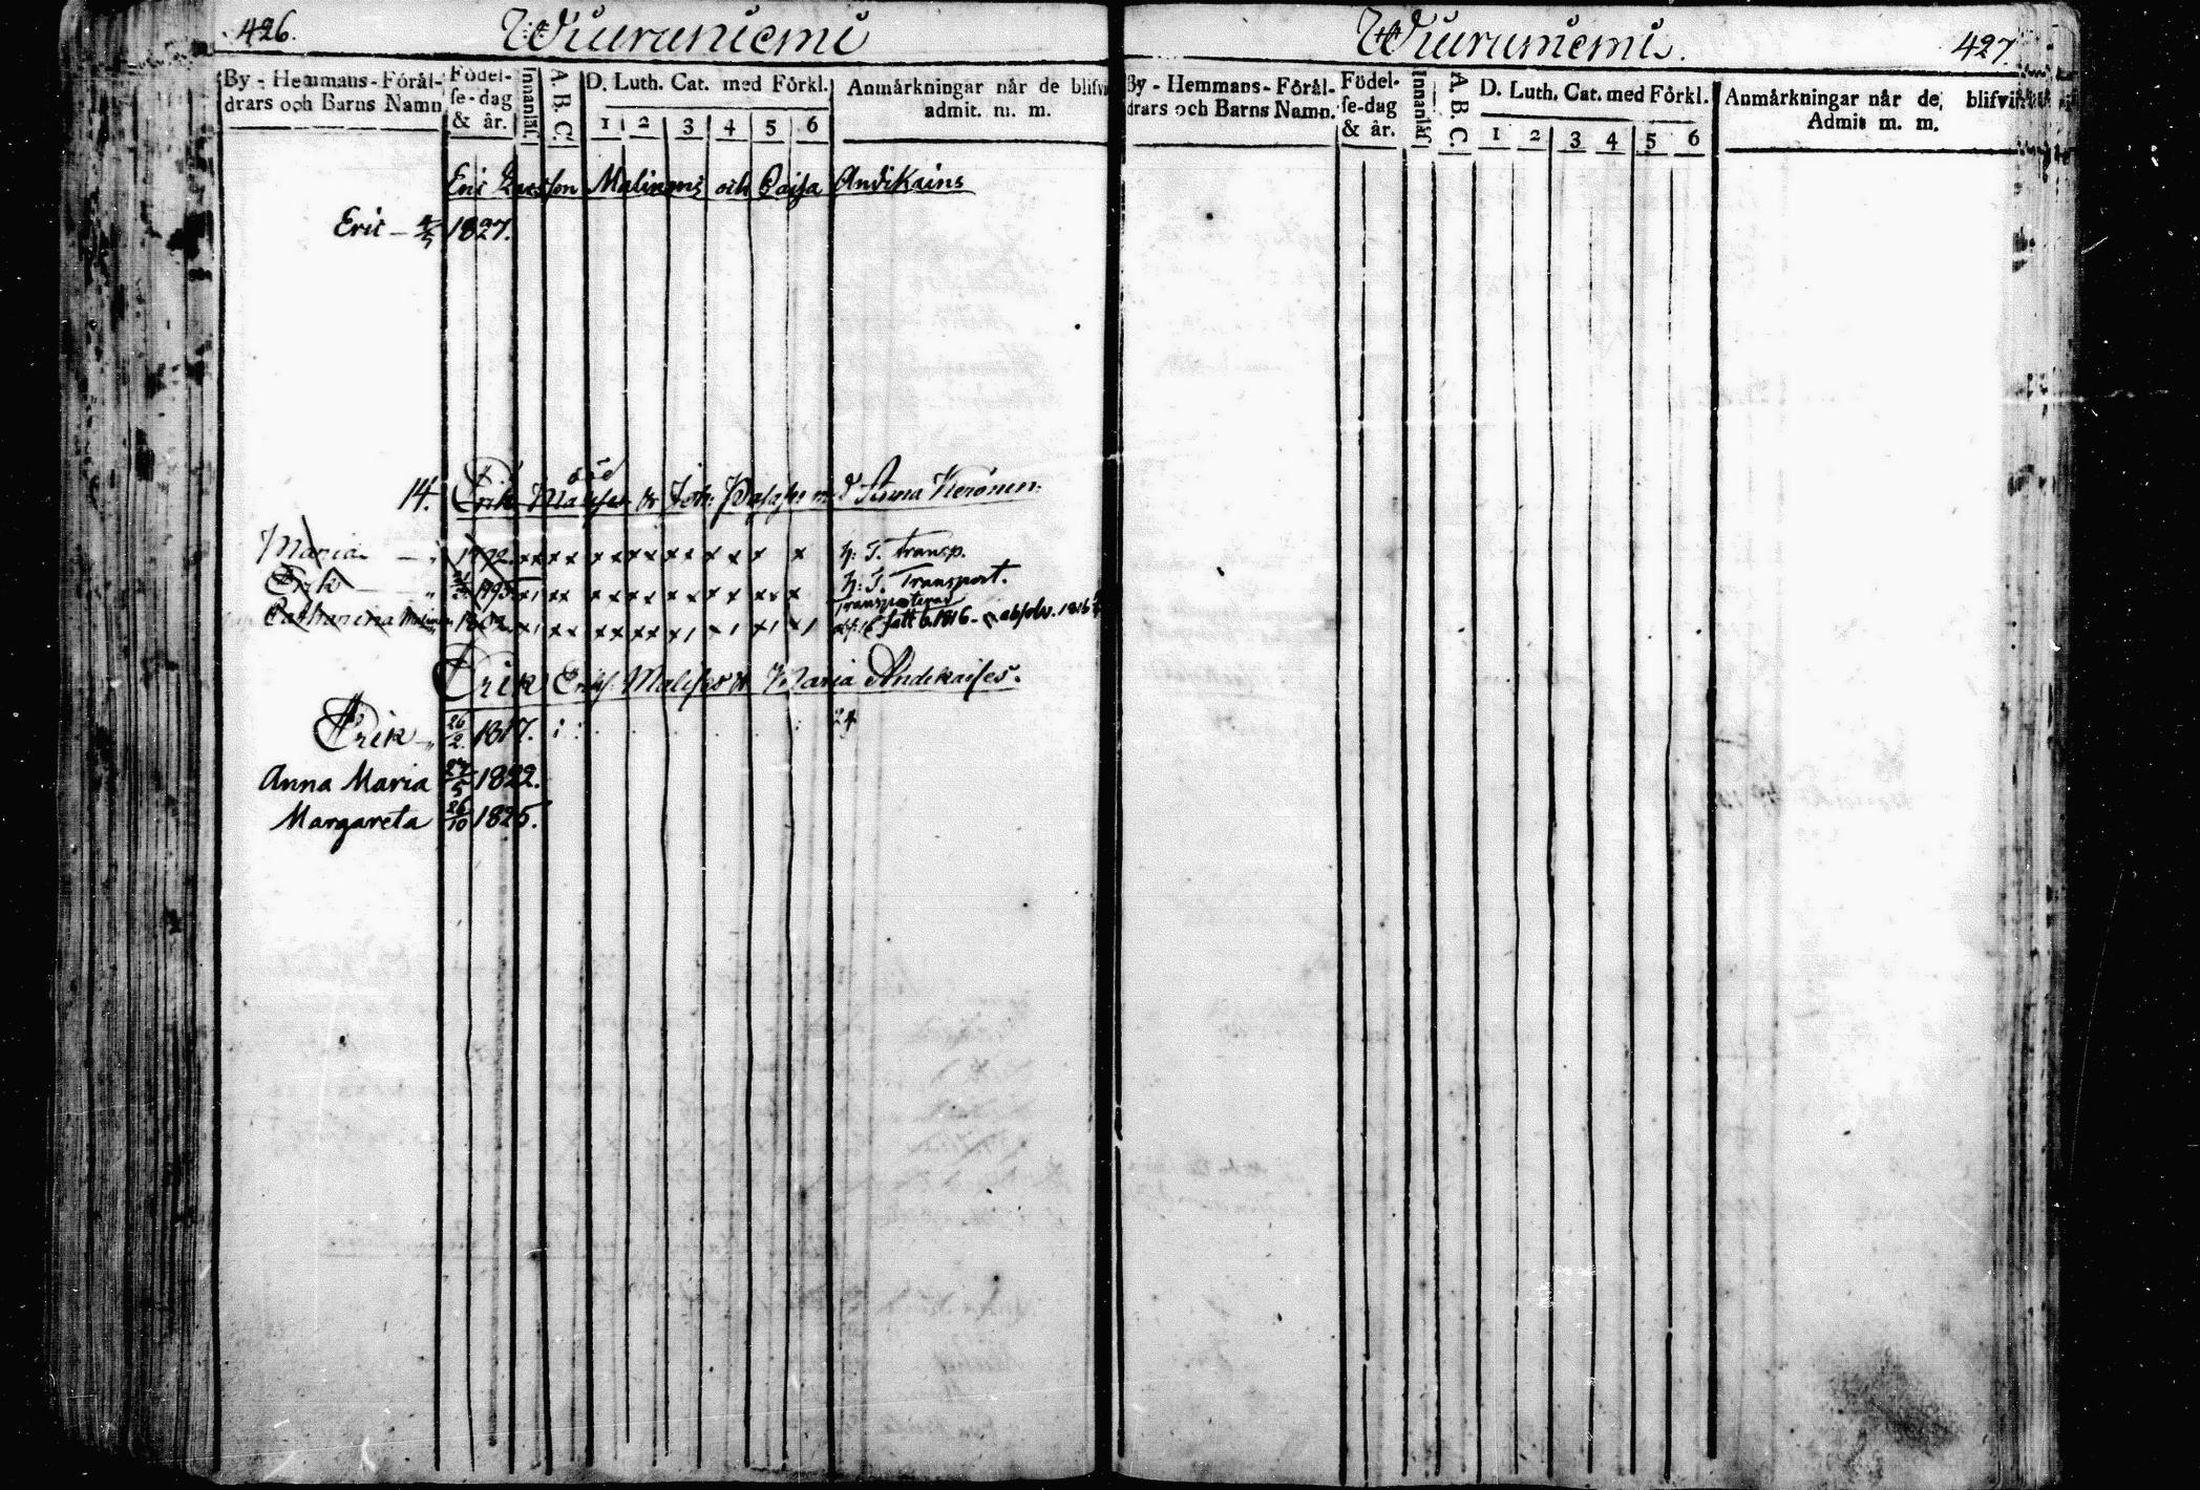 426. Wiuruniemi
By-Hemmans-Föräl-
drars och Barns Namn
Födel-
se-dag
& år.
Innanläs.
A. B. C.
D. Luth. Cat. med Förkl.
1 2 3 4 5 6
Anmärkningar når de blifvi
admit. m. m.
Eric Larsson Malinens och Caisa Andikains
Eric - 4/5 1827.
14. Erik död
Maria 1792. x x x x x x x x x x x x x x x h: T. transp.
Erik 1795 x x x x x x x x x x x x x x h: T. Transport.
Transporterad
Catharina 1802. fatt 6. 1816 - absolv. 1816
Erik Eriks: & Maria Andikaises.
Erik 26/2 1817. 24
Anna Maria 27/5 1822.
Margareta 26/10 1825.
Wiuruniemi. 427.
By-Hemmans-Föräl-
drars och Barns Namn.
Födel-
se-dag
& år.
Innanläs
A. B. C.
D. Luth. Cat. med Förkl.
1 2 3 4 5 6
Anmärkningar når de blifvit
Admit m. m.